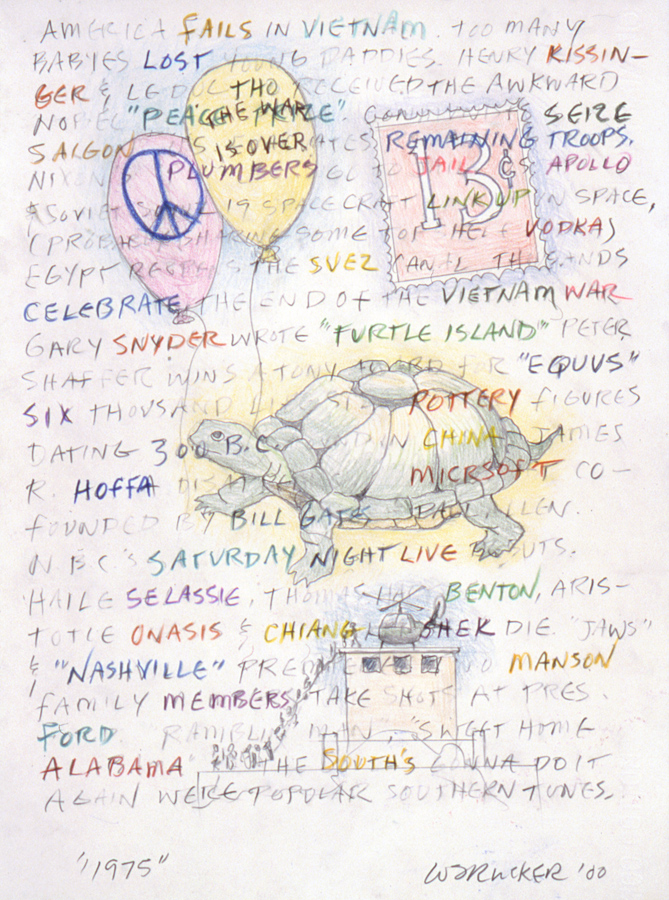 AMERICA FAILS IN VIETNAM. TOO MANY
BABYES LOST YOUNG DADDIES. HENRY KISSIN-
GER & LE DUC THO RECEIVED THE AWKWARD
NOBEL "PEACE PRIZE". COMMUNISTS SEIZE
THE WAR
IS OVER
SAIGON REMAINING TROOPS.
NIXON'S PLUMBERS GO TO JAIL. U.S APOLLO
13¢
& SOVIET 19 SPACECRAFT LINK UP IN SPACE,
(PROBABLY SHARING SOME TOP SHELF VODKA)
EGYPT THE SUEZ CANAL. THOUSANDS
CELEBRATE THE END OF THE VIETNAM WAR
GARY SNYDER WROTE "TURTLE ISLAND" PETER
SHAFFER WINS A TONY AWARD FOR "EQUUS"
SIX THOUSAND LIFE SIZE POTTERY FIGURES
DATING 300 B.C. FOUND IN CHINA. JAMES
R. HOFFA DISAPPEARS MICRSOFT CO-
FOUNDED BY BILL GATES & PAUL ALLEN.
N.B.C'S SATURDAY NIGHT LIVE DEBUTS.
HAILE SELASSIE, THOMAS HART BENTON, ARIS-
TOTLE ONASIS & CHIANG KAI SHEK DIE. "JAWS"
& "NASHVILLE" PREMIERE TWO MANSON
FAMILY MEMBERS TAKE SHOTS AT PRES.
FORD. "RAMBLIN MAN", "SWEET HOME
ALABAMA" & "THE SOUTH'S GONNA DO IT
AGAIN WERE POPULAR SOUTHERN TUNES.
"1975"
WJRUCKER '00